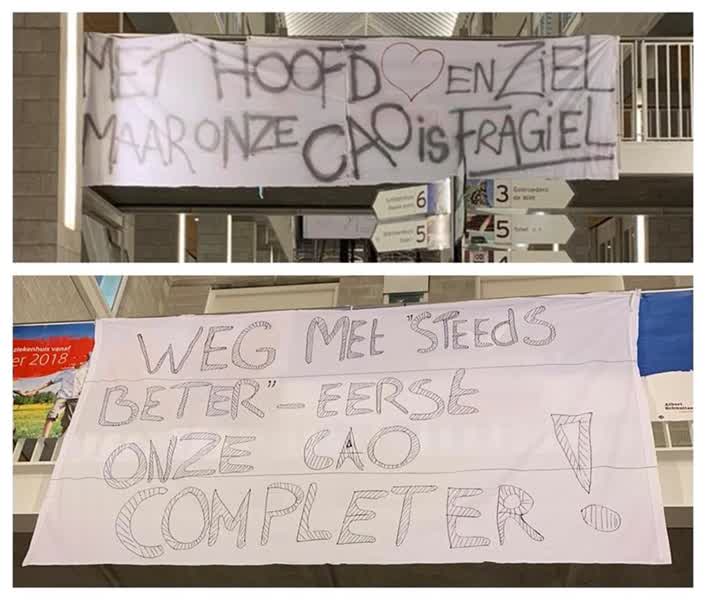 MET HOOFD EN ZIEL
MAAR ONZE CAO is FRAGIEL
6
3
5
5
4
ziekenhuis vanaf
er 2018
Albert
Schweitzer
WEG MET "STEEdS
BETER" - EERSt
ONZE CAO
COMPLETER !